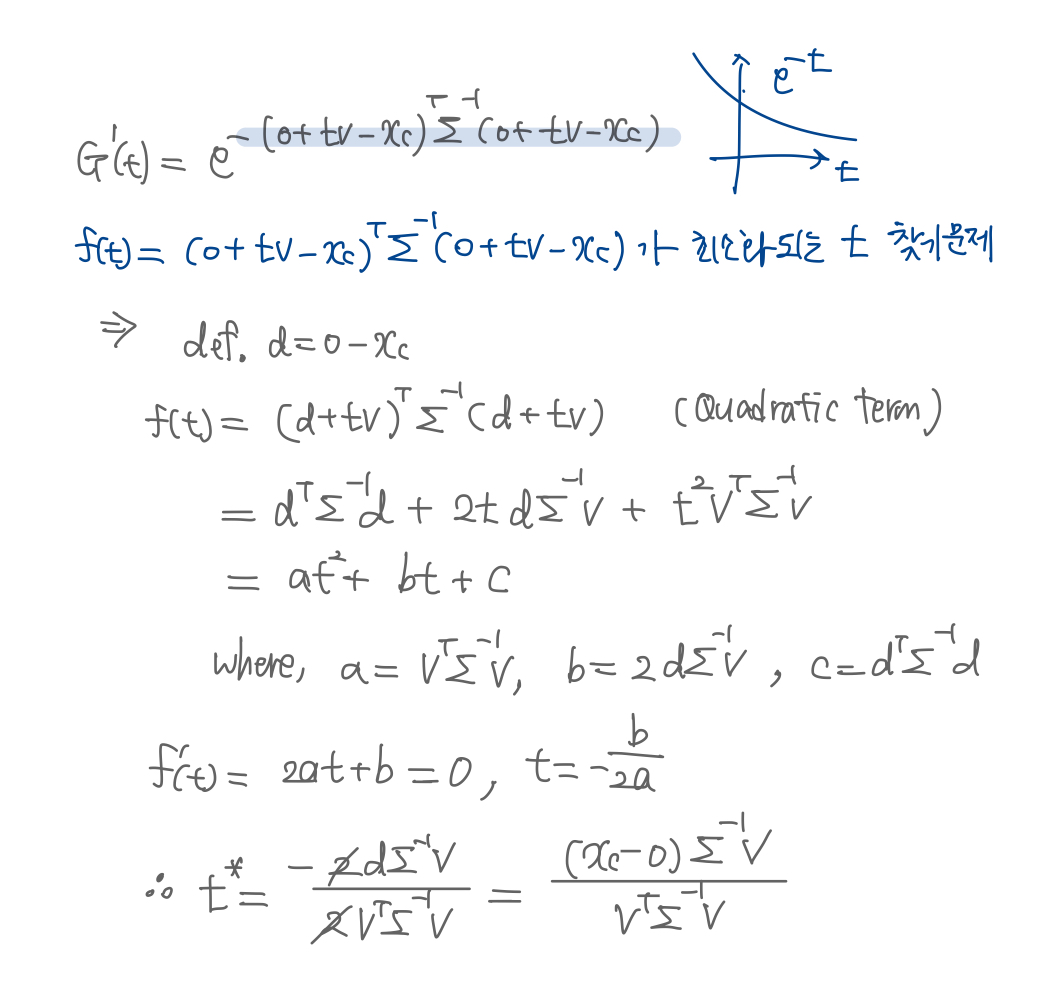 e^{-t}
t
G'(t) = e^{-(o+tv-x_c)^T Σ^{-1} (o+tv-x_c)}
f(t) = (o+tv-x_c)^T Σ^{-1} (o+tv-x_c) 가 최소화되는 t 찾기 문제
⇒ def. d = o - x_c
f(t) = (d+tv)^T Σ^{-1} (d+tv) (Quadratic term)
= d^T Σ^{-1} d + 2t d Σ^{-1} v + t^2 v^T Σ^{-1} v
= at^2 + bt + c
where, a = v^T Σ^{-1} v, b = 2 d Σ^{-1} v, c = d^T Σ^{-1} d
f'(t) = 2at + b = 0, t = -b/2a
∴ t^* = -2dΣ^{-1}v / 2v^T Σ^{-1} v = (x_c - o) Σ^{-1} v / v^T Σ^{-1} v